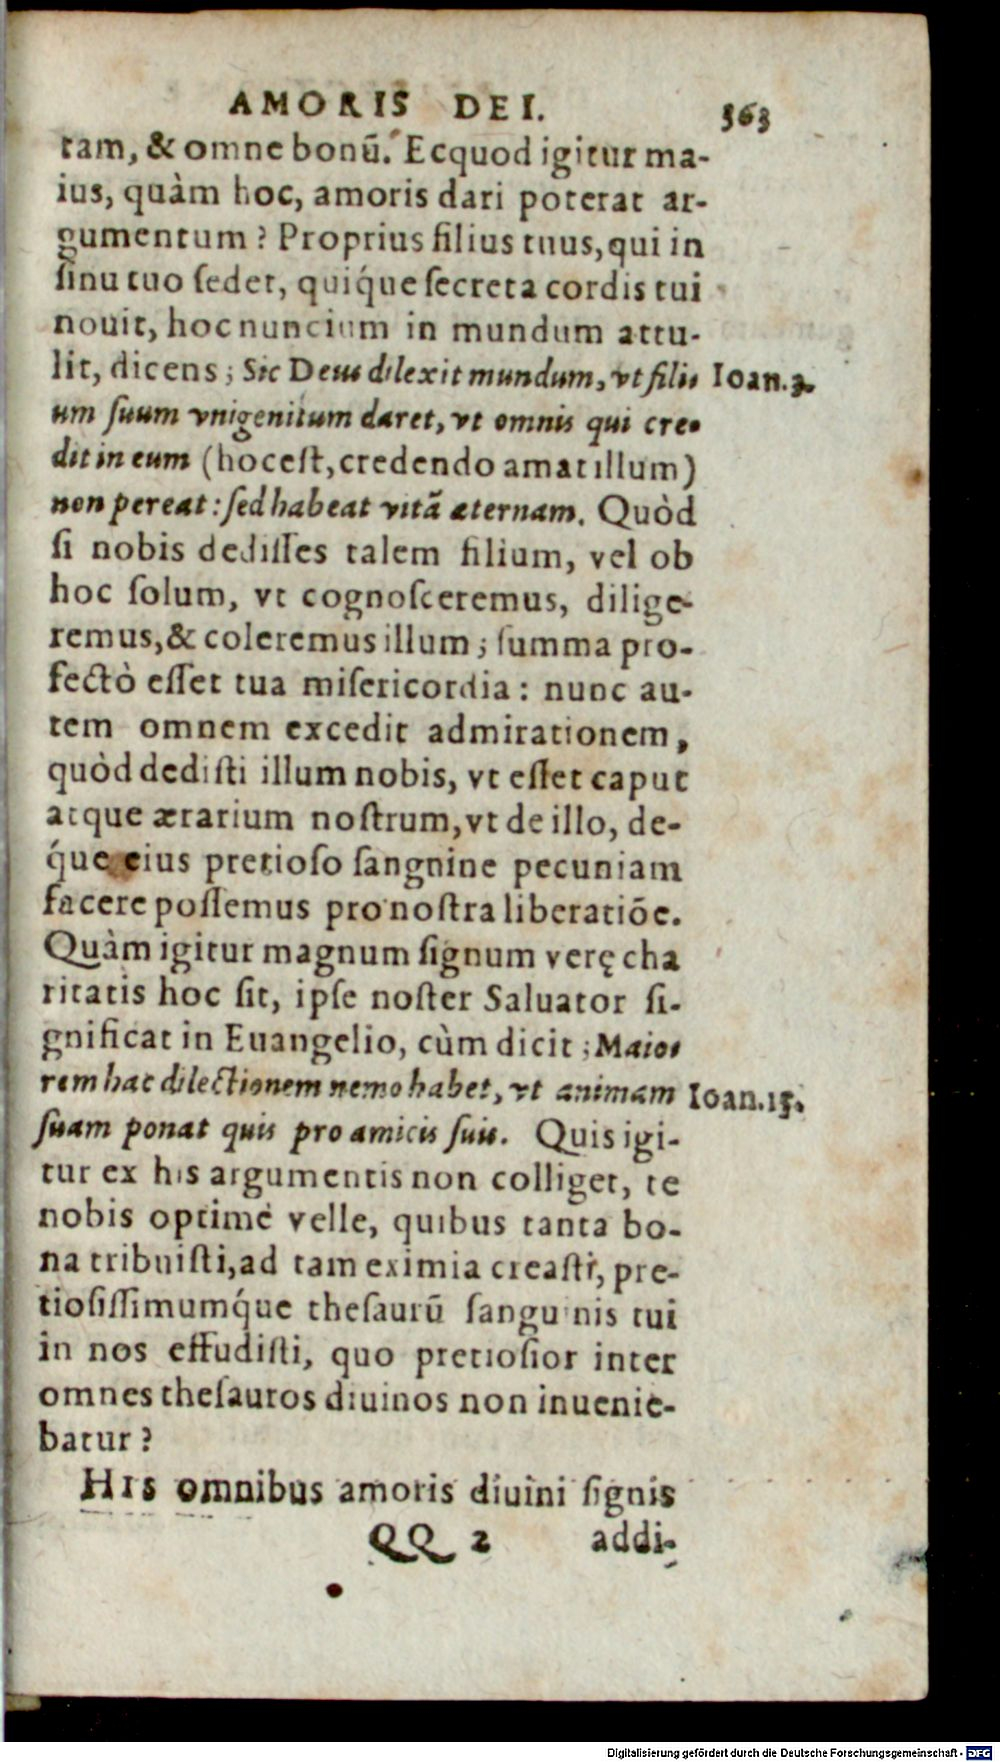 AMORIS DEI. 363
tam, & omne bonũ. Ecquod igitur ma-
ius, quàm hoc, amoris dari poterat ar-
gumentum? Proprius filius tuus, qui in
ſinu tuo ſedet, quiq́ue ſecreta cordis tui
nouit, hoc nuncium in mundum attu-
lit, dicens; Sic Deus dilexit mundum, vt fili- Ioan.3.
um ſuum vnigenitum daret, vt omnis qui cre-
dit in eum (hoc eſt, credendo amat illum)
non pereat: ſed habeat vitã æternam. Quòd
ſi nobis dediſſes talem filium, vel ob
hoc ſolum, vt cognoſceremus, dilige-
remus, & coleremus illum; ſumma pro-
fectò eſſet tua miſericordia: nunc au-
tem omnem excedit admirationem,
quòd dediſti illum nobis, vt eſſet caput
atque ærarium noſtrum, vt de illo, de-
q́ue eius pretioſo ſangnine pecuniam
facere poſſemus pro noſtra liberatiõe.
Quàm igitur magnum ſignum verę cha
ritatis hoc ſit, ipſe noſter Saluator ſi-
gnificat in Euangelio, cùm dicit; Maio-
rem hac dilectionem nemo habet, vt animam Ioan.15.
ſuam ponat quis pro amicis ſuis. Quis igi-
tur ex his argumentis non colliget, te
nobis optimè velle, quibus tanta bo-
na tribuiſti, ad tam eximia creaſti, pre-
tioſiſſimumq́ue theſaurũ ſanguinis tui
in nos effudiſti, quo pretioſior inter
omnes theſauros diuinos non inuenie-
batur?
HIS omnibus amoris diuini ſignis
QQ 2 addi-
Digitalisierung gefördert durch die Deutsche Forschungsgemeinschaft - DFG